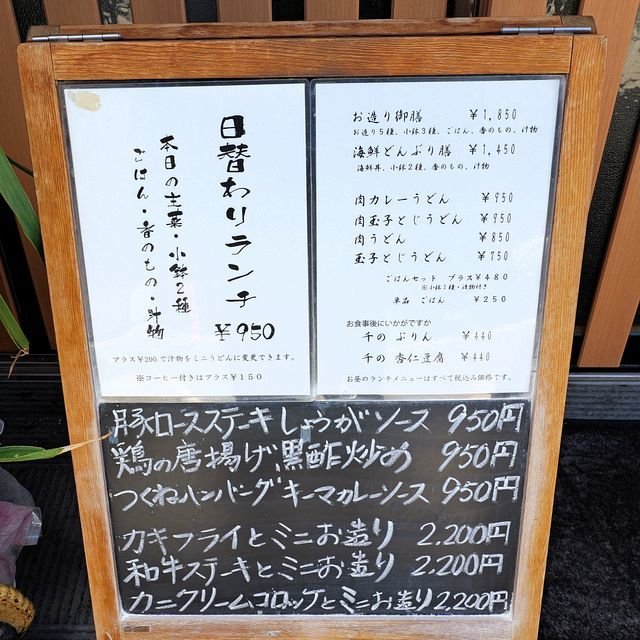 日替わりランチ
本日の主菜・小鉢2種
ごはん・香のもの・汁物
￥950
プラス￥200で汁物をミニうどんに変更できます。
※コーヒー付きはプラス￥150
お造り御膳 ￥1,850
お造り5種、小鉢3種、ごはん、香のもの、汁物
海鮮どんぶり膳 ￥1,450
海鮮丼、小鉢2種、香のもの、汁物
肉カレーうどん ￥950
肉玉子とじうどん ￥950
肉うどん ￥850
玉子とじうどん ￥750
ごはんセット プラス￥480
※小鉢1種・漬物付き
単品 ごはん ￥250
お食事後にいかがですか
千の ぷりん ￥440
千の 杏仁豆腐 ￥440
お昼のランチメニューはすべて税込み価格です。
豚ロースステーキしょうがソース 950円
鶏の唐揚げ黒酢炒め 950円
つくねハンバーグキーマカレーソース 950円
カキフライとミニお造り 2.200円
和牛ステーキとミニお造り 2.200円
カニクリームコロッケとミニお造り 2.200円